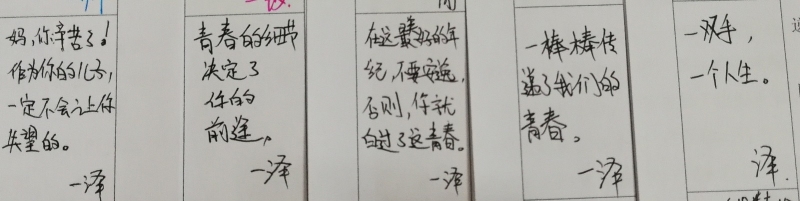 妈,你辛苦了!
作为你的儿子,
一定不会让你
失望的。
一泽
青春的细节
决定了
你的
前途。
一泽
在这最好的年
纪,不要安逸,
否则,你就
白过了这青春。
一泽
一棒棒传
递了我们的
青春。
一泽
一双手,
一个人生。
泽.